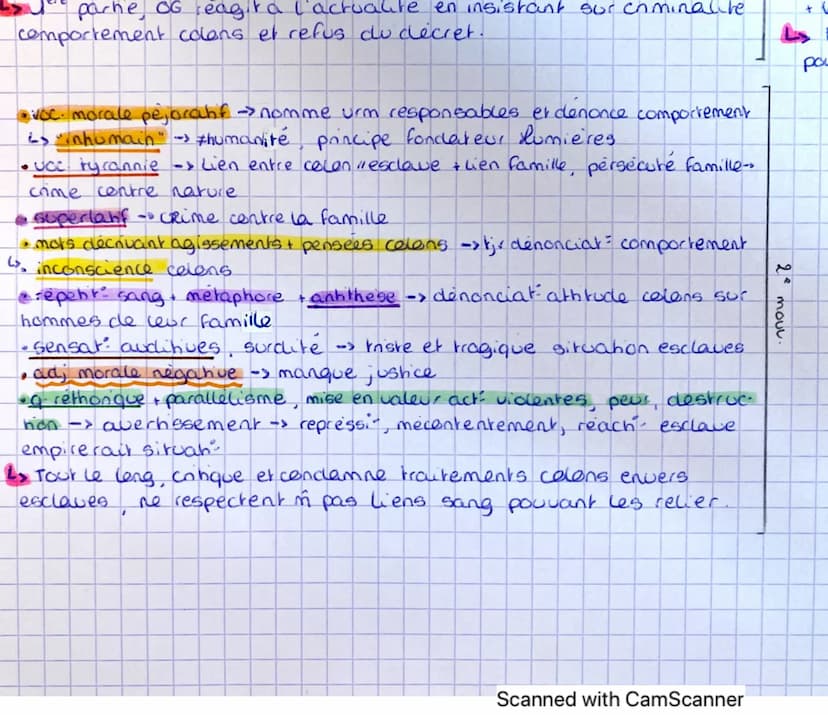 ↳ 1ère partie, OG réagit à l'actualité en insistant sur criminalité
comportement colons et refus du décret.
↳
• voc. morale péjoratif → nomme urm responsables et dénonce comportement
↳ "inhumain" → ≠ humanité, principe fondateur Lumières
• voc. tyrannie → Lien entre colon // esclave + lien famille, persécuté famille →
crime contre nature
• superlatif → crime contre la famille
• mots décrivant agissements + pensées colons → tjs dénonciat° comportement
↳ inconscience colons
• répétit° sang + métaphore + antithèse → dénonciat° attitude colons sur
hommes de leur famille
• sensat° auditives, surdité → triste et tragique situation esclaves
• adj morale négative → manque justice
• q réthorique + parallélisme, mise en valeur act° violentes, peur, destruc-
tion → avertissement → répressi°, mécontentement, réact° esclave
empirerait situat°
↳ Tout le long, critique et condamne traitements colons envers
esclaves, ne respectent m̂ pas liens sang pouvant les relier.
2e mouv.
Scanned with CamScanner